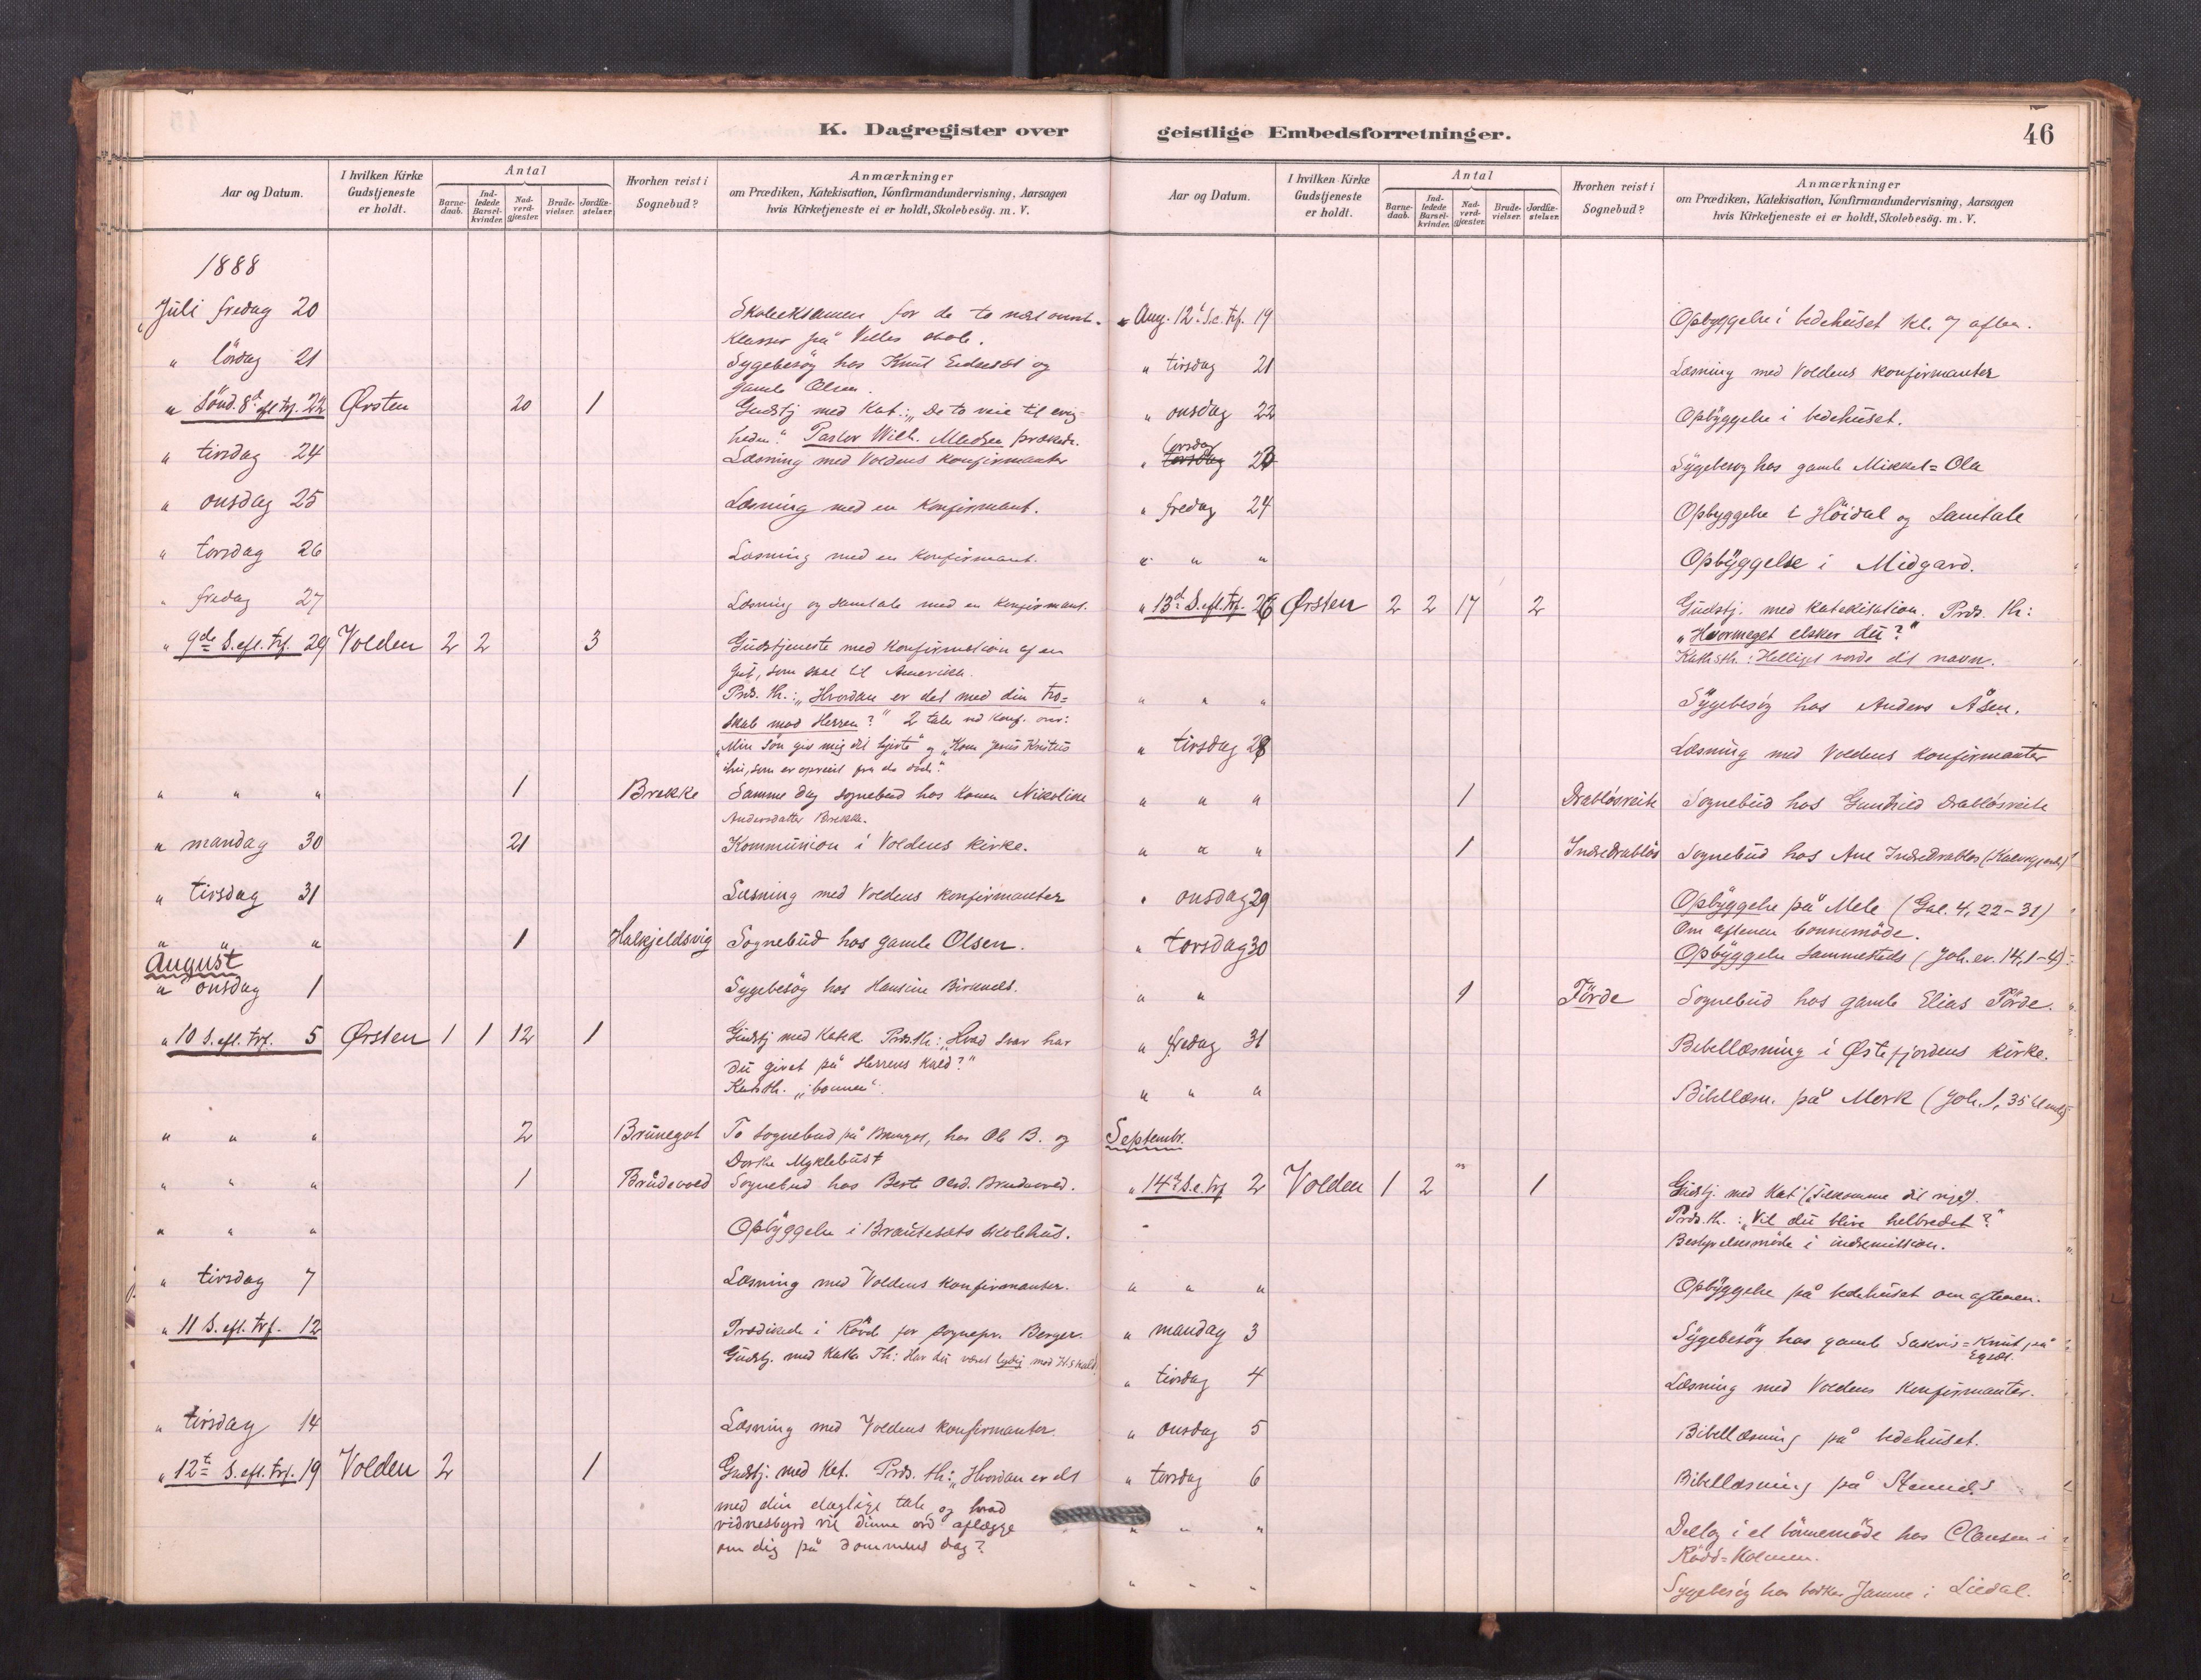 K. Dagregister over
Aar og Datum.
I hvilken Kirke Gudstjeneste er holdt.
Antal
Barnedaab.
Indledede Barselkvinder.
Nadverdgjæster.
Brudevielser.
Jordfæstelser.
Hvorhen reist i Sognebud?
Anmærkninger
om Prædiken, Katekisation, Konfirmandundervisning, Aarsagen
hvis Kirketjeneste ei er holdt, Skolebesög. m. V.
1888
Juli fredag 20 Skoleeksamen for de to
klasser på Velles skole.
" lördag 21 Sygebesög hos Knut og
gamle Olsen.
" Sönd. 8de efl. trf. 22 Ørsten 20 1 Gudstj med Kat.: "De to veie til evig-
heden." Pastor Wilh. prækede.
" tirsdag 24 Læsning med Voldens konfirmanter
" onsdag 25 Læsning med en konfirmant.
" torsdag 26 Læsning med en konfirmant.
" fredag 27 Læsning og samtale med en konfirmant.
" 9de S. efl. trf. 29 Volden 2 2 3 Gudstjeneste med konfirmation af en
gut, som skal til Amerika.
Præd. th.: "Hvordan er det med din tro=
skab mod Herren?" 2 tale ved konf. over:
"Min sön giv mig dit hjerte" og "Kom Jesus Kristus
ihu, som er opreist fra de döde."
" " " 1 Brekke Samme dag sognebud hos konen Nikoline
Andersdatter Brekke.
" mandag 30 21 Kommunion i Voldens kirke.
" tirsdag 31 Læsning med Voldens konfirmanter
" " " 1 Halkjeldsvig Sognebud hos gamle Olsen.
August
" onsdag 1 Sygebesög hos Hansine
" 10 S. efl. trf. 5 Ørsten 1 1 12 1 Gudstj med Katek. Præd. th.: "Hvad svar har
du givet på Herrens kald?"
Kat. th. "bönnen".
" " " 2 Brünegot To sognebud på hos Ole B. og
Dorthe Myklebust
" " " 1 Brudevold Sognebud hos Berte Olsd. Brudevold.
" " " Opbyggelse i skolehus.
" tirsdag 7 Læsning med Voldens konfirmanter.
" 11 S. efl. trf. 12 Prædikede i for sognepr. Berger.
Gudstj. med Th: Har du været lydig mod H.s kald
" tirsdag 14 Læsning med Voldens konfirmanter.
" 12te S. efl. trf. 19 Volden 2 1 Gudstj. med Kat. Præd. th.: "Hvordan er det
med din daglige tale, og hvad
vidnesbyrd vil dinne ord aflægge
om dig på dommens dag?
geistlige Embedsforretninger.
46
Aar og Datum.
I hvilken Kirke Gudstjeneste er holdt.
Antal
Barnedaab.
Indledede Barselkvinder.
Nadverdgjæster.
Brudevielser.
Jordfæstelser.
Hvorhen reist i Sognebud?
Anmærkninger
om Prædiken, Katekisation, Konfirmandundervisning, Aarsagen
hvis Kirketjeneste ei er holdt, Skolebesög. m. V.
" Aug. 12t S. e. trf. 19 Opbyggelse i bedehuset kl. 7 aften.
" tirsdag 21 Læsning med Voldens konfirmanter
" onsdag 22 Opbyggelse i bedehuset.
" torsdag 23 Sygebesög hos gamle Mikkel=Ola
" fredag 24 Opbyggelse i Höidal og samtale
" " " Opbyggelse i Midgard.
" 13d S. efl. trf. 26 Ørsten 2 2 17 2 Gudstj. med katekisation. Præd. th:
"Hvormeget elsker du?"
Kat. th.: Helliget vorde dit navn.
" " " Sygebesög hos Anders Åsen.
" tirsdag 28 Læsning med Voldens konfirmanter
" " " 1 Drablösreite Sognebud hos Drablösreite
" " " 1 Indredrablös Sognebud hos Ane Indredrablös
" onsdag 29 Opbyggelse på Mele (Gal. 4, 22-31)
Om aftenen bönnemöde.
" torsdag 30 Opbyggelse sammesteds (Joh. ev. 14, 1-4)
" " 1 Förde Sognebud hos gamle Elias Förde.
" fredag 31 Bibellæsning i Østefjordens kirke.
" " " Bibellæsn. på Mork (Joh. 1, 35
Septembr.
" 14de S. e. trf 2 Volden 1 2 " 1 Gudstj. med Kat (tilkomme dit rige).
Præd. th.: "Vil du blive helbredet?"
Bestyrelsesmöde i indremission.
" " " Opbyggelse på bedehuset om aftenen.
" mandag 3 Sygebesög hos gamle Knut på
Egset.
" tirsdag 4 Læsning med Voldens konfirmanter.
" onsdag 5 Bibellæsning på bedehuset.
" torsdag 6 Bibellæsning på
" " " Deltog i et bönnemöde hos Clausen i
Rödd=Holmen.
" " " Sygebesög hos i Liedal.